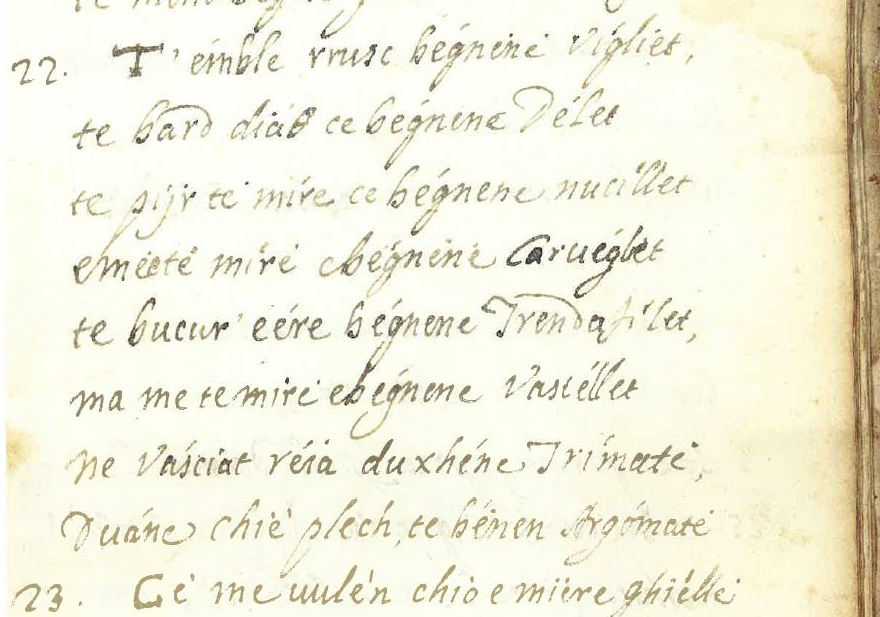 22. T' émble rrusc bégnene Vigliet,
te bard diaś ce bégnene Délet
te pijr te mire ce bégnene nucillet
emeete mire cbégnene Caruéglet
te bucur' eére bégnene Trendafilet,
ma me te mire ebégnene Vastéllet
ne Vásciat réia duxhéne Trimate,
Duáne chie plech, te bénen Argómate
23. Cé me uulén chio e miere ghiélle